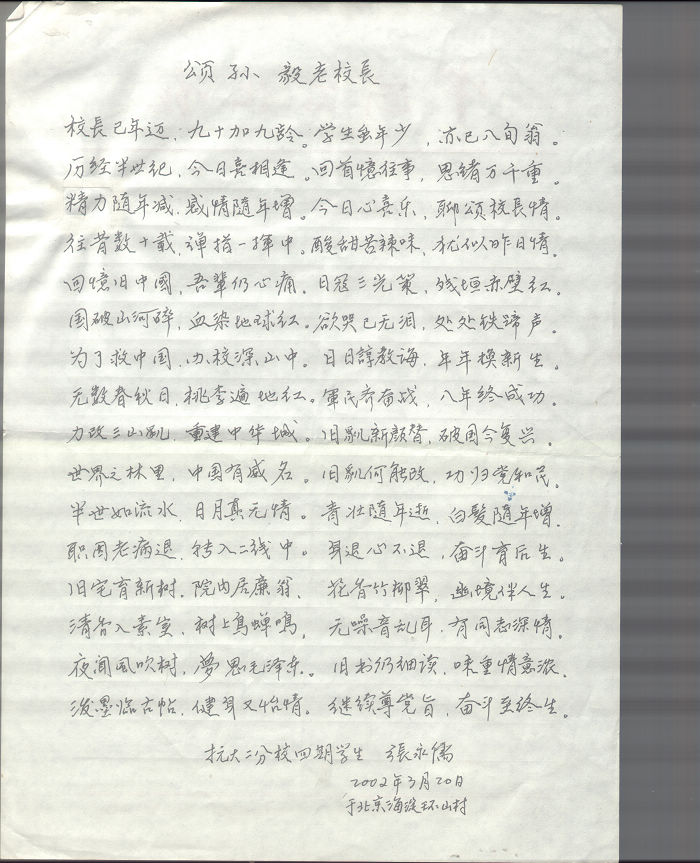 颂孙 毅老校長
校長已年迈,九十加九龄。学生虽年少,亦已八旬翁。
历经半世纪,今日喜相逢。回首憶往事,思绪万千重。
精力随年减,感情随年增。今日心喜乐,聊颂校長情。
往昔数十载,弹指一挥中。酸甜苦辣味,犹似昨日情。
回憶旧中國,吾辈仍心痛,日寇三光策,残垣赤壁红。
国破山河碎,血染地球红。欲哭已无泪,处处铁蹄声。
为了救中国,办校深山中。日日諄教诲,年年換新生。
无数春秋日,桃李遍地红。軍民齐奋战,八年终成功。
力改三山皃,重建中华城。旧皃新颜替,破国今复兴。
世界之林里,中国有威名。旧皃何能改,功归党和民。
半世如流水,日月真无情。青壮随年逝,白髮随年增。
职因老病退,转入二线中。身退心不退,奋斗育后生。
旧宅育新树,院内居廉翁、花香竹柳翠,幽境伴人生。
清香入素室,树上鸟蝉鸣,无噪音乱耳,有同志深情。
夜间风吹树,夢思毛泽东。旧书仍细读,味重情意浓。
泼墨临古帖,健身又怡情。继续尊党旨,奋斗至终生。
抗大二分校四期学生 張永儒
2002年3月20日
于北京海淀环山村